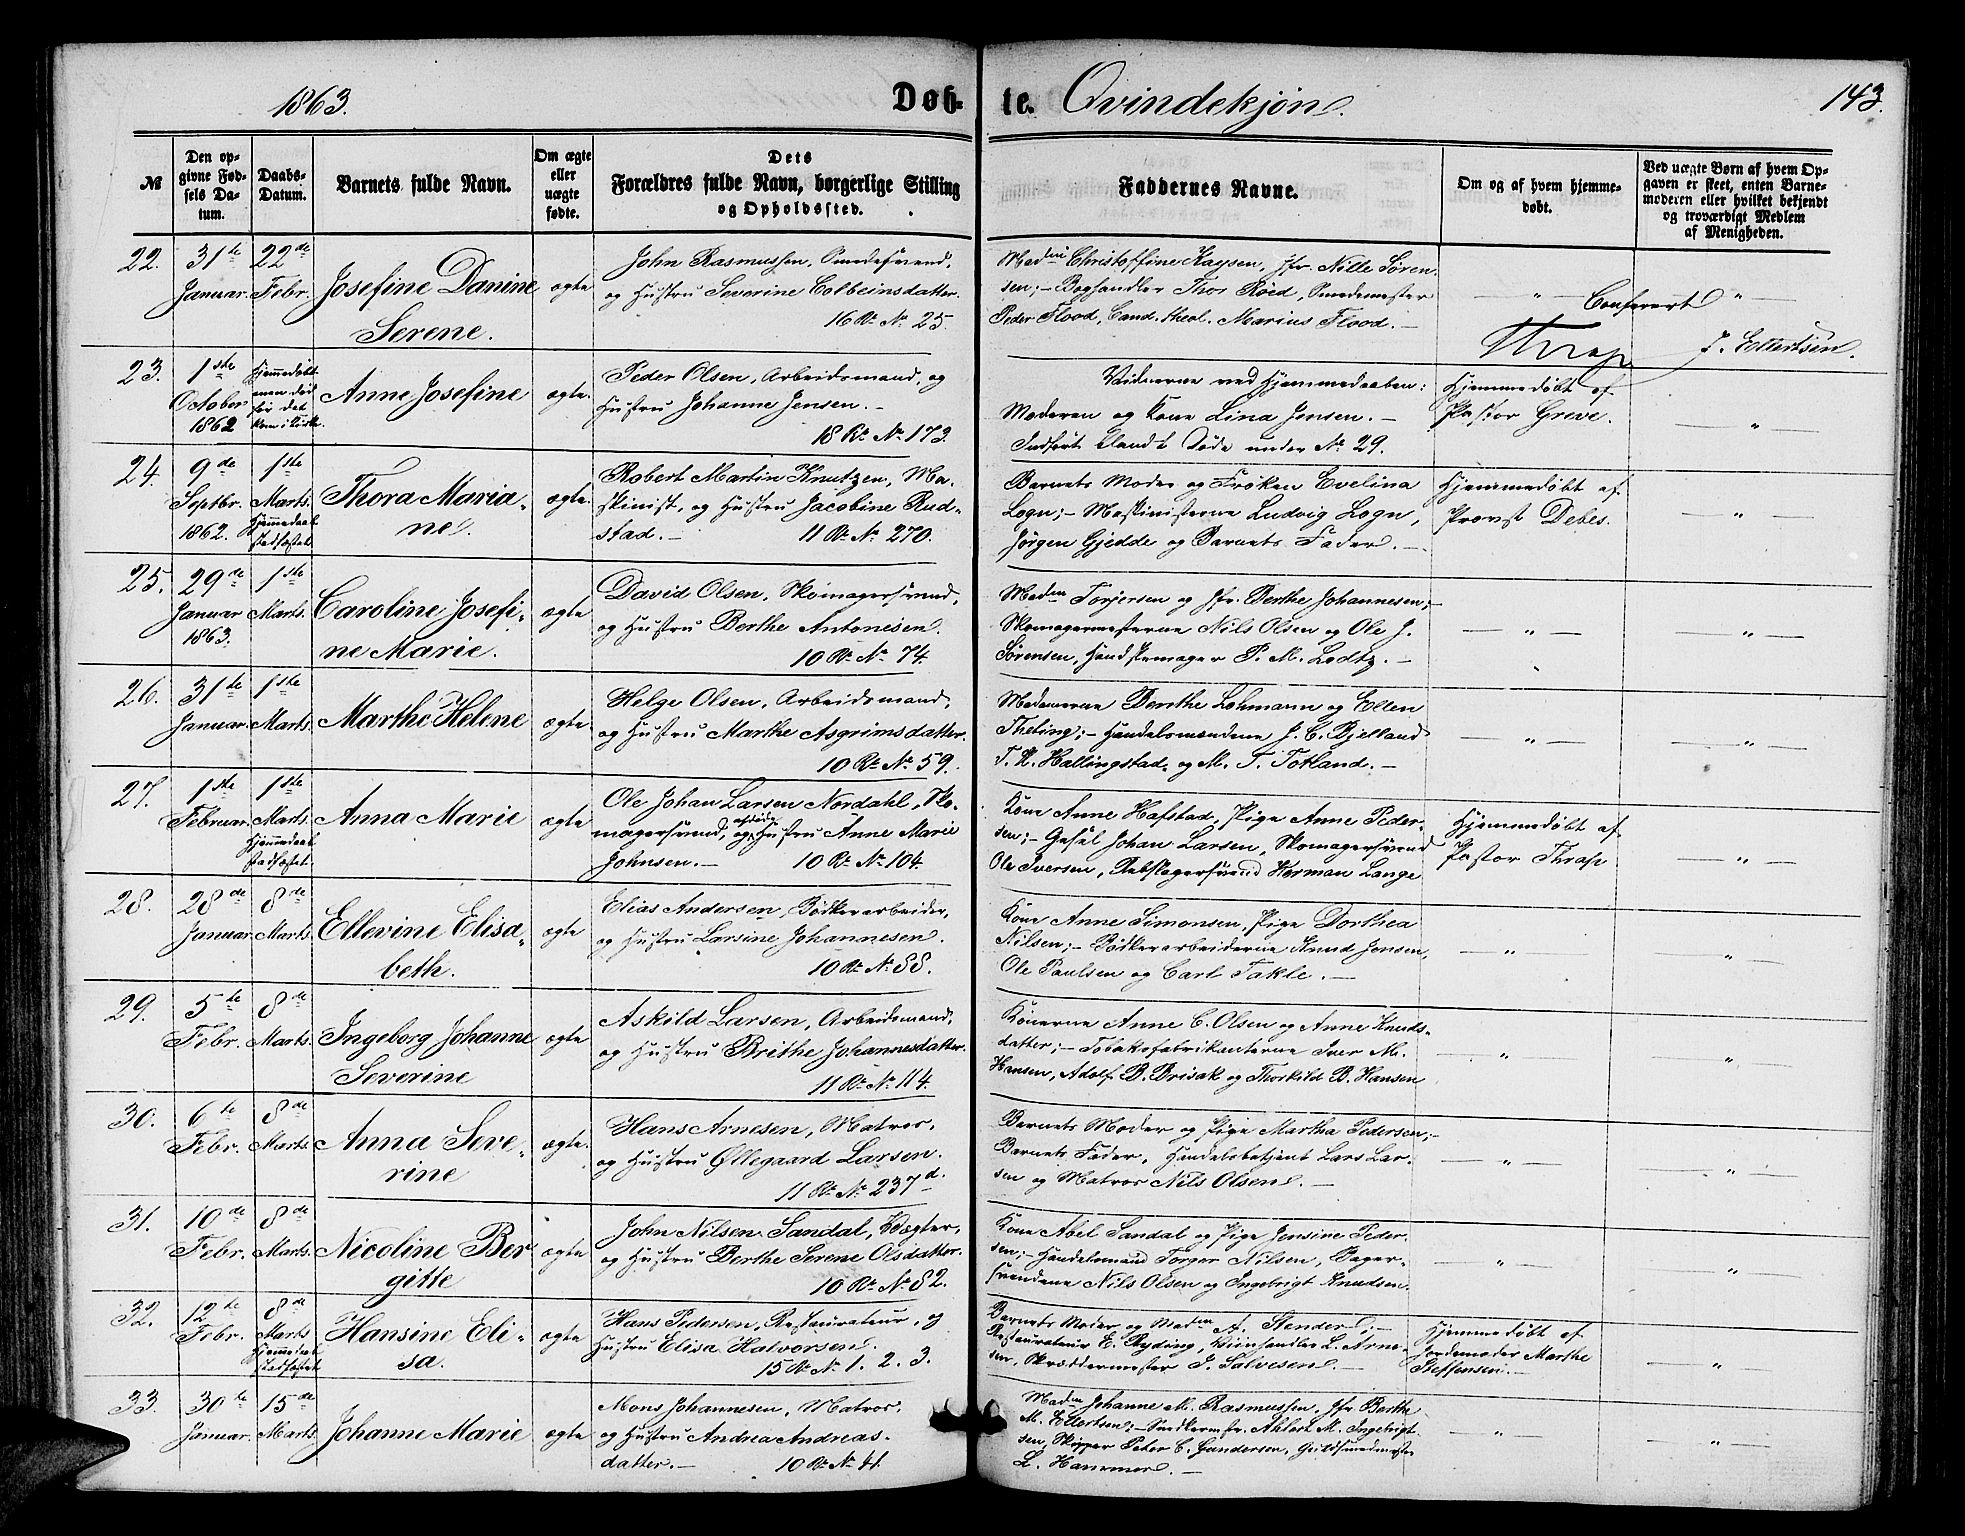 1863.
Døb-
te.
Qvindekjøn.
143.
№
Den op-
givne Fød-
sels Da-
tum.
Daabs-
Datum.
Barnets fulde Navn.
Om ægte
eller
uægte
fødte.
Dets
Forældres fulde Navn, borgerlige Stilling
og Opholdssted.
Faddernes Navne.
Om og af hvem hjemme-
døbt.
Ved uægte Børn af hvem Op-
gaven er skeet, enten Barne-
moderen eller hvilket bekjendt
og troværdigt Medlem
af Menigheden.
22.
31te
Januar.
22de
Febr.
Josefine Danine
Serene.
ægte
John Rasmussen, Smedesvend,
og Hustru Severine Colbeinsdatter.
16 Rd. No. 25.
Madm Christoffine Kaysen, Jfr. Nille Søren-
sen; - Boghandler Thor Røed, Smedemester
Peder Flood, Cand. theol. Marius Flood. -
— „ —
Confereret
„ —
Thrap
J. Ellertsen.
23.
1ste
October
1862
Hjemmedøbt
men død
før det
kom i Kirke.
Anne Josefine
ægte.
Peder Olsen, Arbeidsmand, og
Hustru Johanne Jensen. -
18 Rd. No. 173.
Vidnerne ved Hjemmedaaben:
Moderen og Kone Lina Jensen. -
Indført blandt Døde under No. 29.
Hjemmedøbt af
Pastor Greve.
— „ —
24.
9de
Septbr.
1862.
1ste
Marts.
Hjemmedaab
stadfæstet.
Thora Maria-
ne.
ægte.
Robert Martin Knutzen, Ma-
skinist, og Hustru Jacobine Rud-
stad. - 11 Rd. No. 270.
Barnets Moder og Frøken Evelina
Logn; - Maskinisterne Ludvig Logn,
Jørgen Gjedde og Barnets Fader. -
Hjemmedøbt af
Provst Debes.
— „ —
25.
29de
Januar
1863.
1ste
Marts.
Caroline Josefi-
ne Marie.
ægte
David Olsen, Skomagersvend,
og Hustru Berthe Antonisen.
10 Rd. No. 74.
Madm Torjersen og Jfr. Berthe Johannesen; -
Skomagermesterne Nils Olsen og Ole J.
Sørensen, Handskemager P. M. Lodtz. -
— „ —
— „ —
26.
31te
Januar.
1ste
Marts.
Marthe Helene
ægte.
Helge Olsen, Arbeidsmand,
og Hustru Marthe Asgrimsdatter.
10 Rd. No. 59.
Madamerne Dorthe Lohmann og Ellen
Theting; - Handelsmændene J. C. Bjelland
T. K. Hallingstad, og M. T. Totland. -
— „ —
— „ —
27.
1ste
Februar.
1ste
Marts.
Hjemmedaab
stadfæstet.
Anna Marie
ægte
Ole Johan Larsen Nordahl, Sko-
magersvend, og afdøde Hustru Anne Marie
Johnsen. - 10 Rd. No. 104.
Kone Anne Hafstad, Pige Anne Peder-
sen; - Gesel Johan Larsen, Skomagersvend
Ole Iversen, Rebslagersvend Herman Lange
Hjemmedøbt af
Pastor Thrap
— „ —
28.
28de
Januar.
8de
Marts.
Ellevine Elisa-
beth.
ægte
Elias Andersen, Bødkerarbeider,
og Hustru Larsine Johannesen.
10 Rd. No. 88.
Kone Anne Simonsen, Pige Dorthea
Nilsen; - Bødkerarbeiderne Knud Jensen,
Ole Paulsen og Carl Takle. -
— „ —
— „ —
29.
5te
Febr.
8de
Marts.
Ingeborg Johanne
Severine
ægte
Askild Larsen, Arbeidsmand,
og Hustru Brithe Johannesdatter.
11 Rd. No. 114.
Konerne Anne C. Olsen og Anne Knuds-
datter; - Tobaksfabrikanterne Iver M.
Hansen, Adolf B. Brisak og Thorkild B. Hansen
— „ —
— „ —
30.
6te
Febr.
8de
Marts.
Anna Seve-
rine
ægte.
Hans Arnesen, Matros,
og Hustru Øllegaard Larsen.
11 Rd. No. 237d.
Barnets Moder og Pige Martha Pedersen; -
Barnets Fader, Handelsbetjent Lars Lar-
sen og Matros Nils Olsen. -
— „ —
— „ —
31.
10de
Febr.
8de
Marts.
Nicoline Ber
gitte
ægte
John Nilsen Sandal, Vægter,
og Hustru Berthe Serene Olsdatter.
10 Rd. No. 82.
Kone Abel Sandal og Pige Jensine Peder-
sen; - Handelsmand Torger Nilsen, Bager-
svendene Nils Olsen og Ingebrigt Knudsen.
— „ —
— „ —
32.
12te
Febr.
8de
Marts
Hjemmedaab
stadfæstet
Hansine Eli-
sa.
ægte
Hans Pedersen, Restaurateur, og
Hustru Elisa Halvorsen.
15 Rd. No. 1. 2. 3.
Barnets Moder og Madm A. Stender; -
Restaurateur E. Ryding, Viinhandler L. Arne-
sen, Skræddermester J. Salvesen. -
Hjemmedøbt af
Jordemoder Marthe
Steffensen. -
— „ —
33.
30te
Januar.
15de
Marts.
Johanne Marie
ægte
Mons Johannesen, Matros.
og Hustru Andrea Andreas-
datter. - 10 Rd. No. 41.
Madm Johanne M. Rasmussen, Jfr. Berthe
M. Ellertsen; - Snedkermstr. Ahlert M. Ingebrigt-
sen, Skipper Peter C. Gundersen, Guldsmedmester
L. Hammer. -
— „ —
— „ —